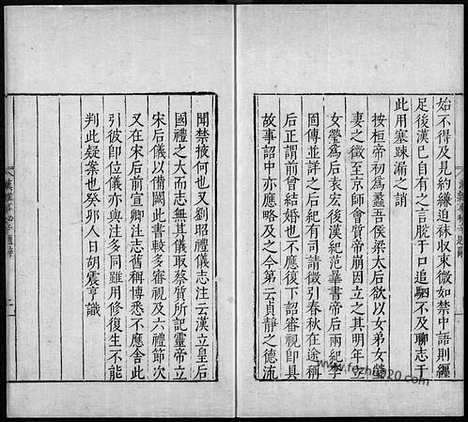 始不得及見約縑迫袜收束微如禁中語則纏
足後漢已自有之言脫于口追駟不及聊志于
此用塞踈漏之誚
按桓帝初為蠡吾侯梁太后欲以女弟女瑩
妻之徵至京師會質帝崩因立之其明年立
女瑩為后袁宏後漢紀范曄書帝后兩紀李
固傳並詳之后紀有司請徵引春秋在途稱
后是則前曾結婚也不應復下詔審視卽具
故事詔中亦應略及之今第云貞靜之德流
聞禁掖何也又劉昭禮儀志注云漢立皇后
國禮之大而志無其儀取蔡質所記靈帝立
宋后儀以備闕此書較多審視及六禮節次
又在宋后前宣卿注志舊稱博悉不應舍此
引彼卽位儀亦與注多同雖用修復生不能
判此疑案也癸卯人日胡震亨識